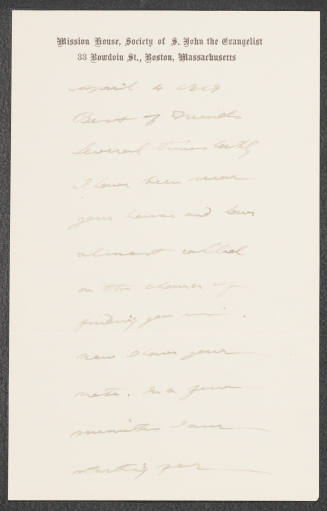 Mission House, Society of S. John the Evangelist
33 Bowdoin St., Boston, Massachusetts
April 4 1919
Best of Friends
Several times lately
I have been near
your house and have
almost called
on the chance of
finding you in.
now I have your
note. In a few
minutes I am
starting for